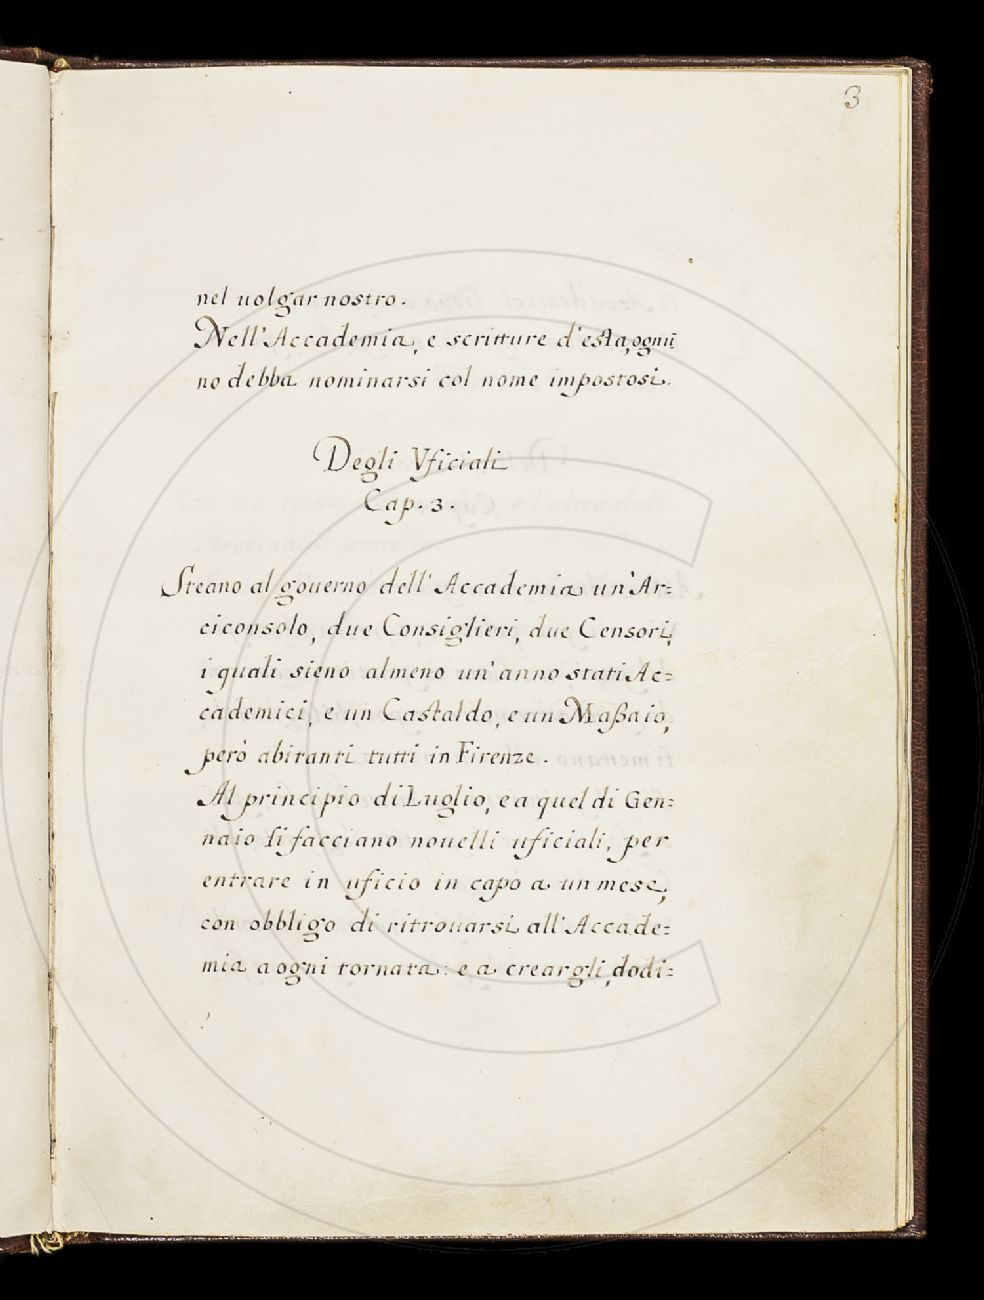 3
nel uolgar nostro.
Nell'Accademia, e scritture d'esta, ogniũ
no debba nominarsi col nome impostosi.
Degli Vficiali
Cap. 3.
Steano al gouerno dell'Accademia un'Ar=
ciconsolo, due Consiglieri, due Censori,
i quali sieno almeno un'anno stati Ac=
cademici, e un Castaldo, e un Maßaio,
però abitanti tutti in Firenze.
Al principio di Luglio, e a quel di Gen=
naio si facciano nouelli uficiali, per
entrare in uficio in capo a un mese,
con obbligo di ritrouarsi all'Accade=
mia a ogni tornata: e a creargli, dodi=